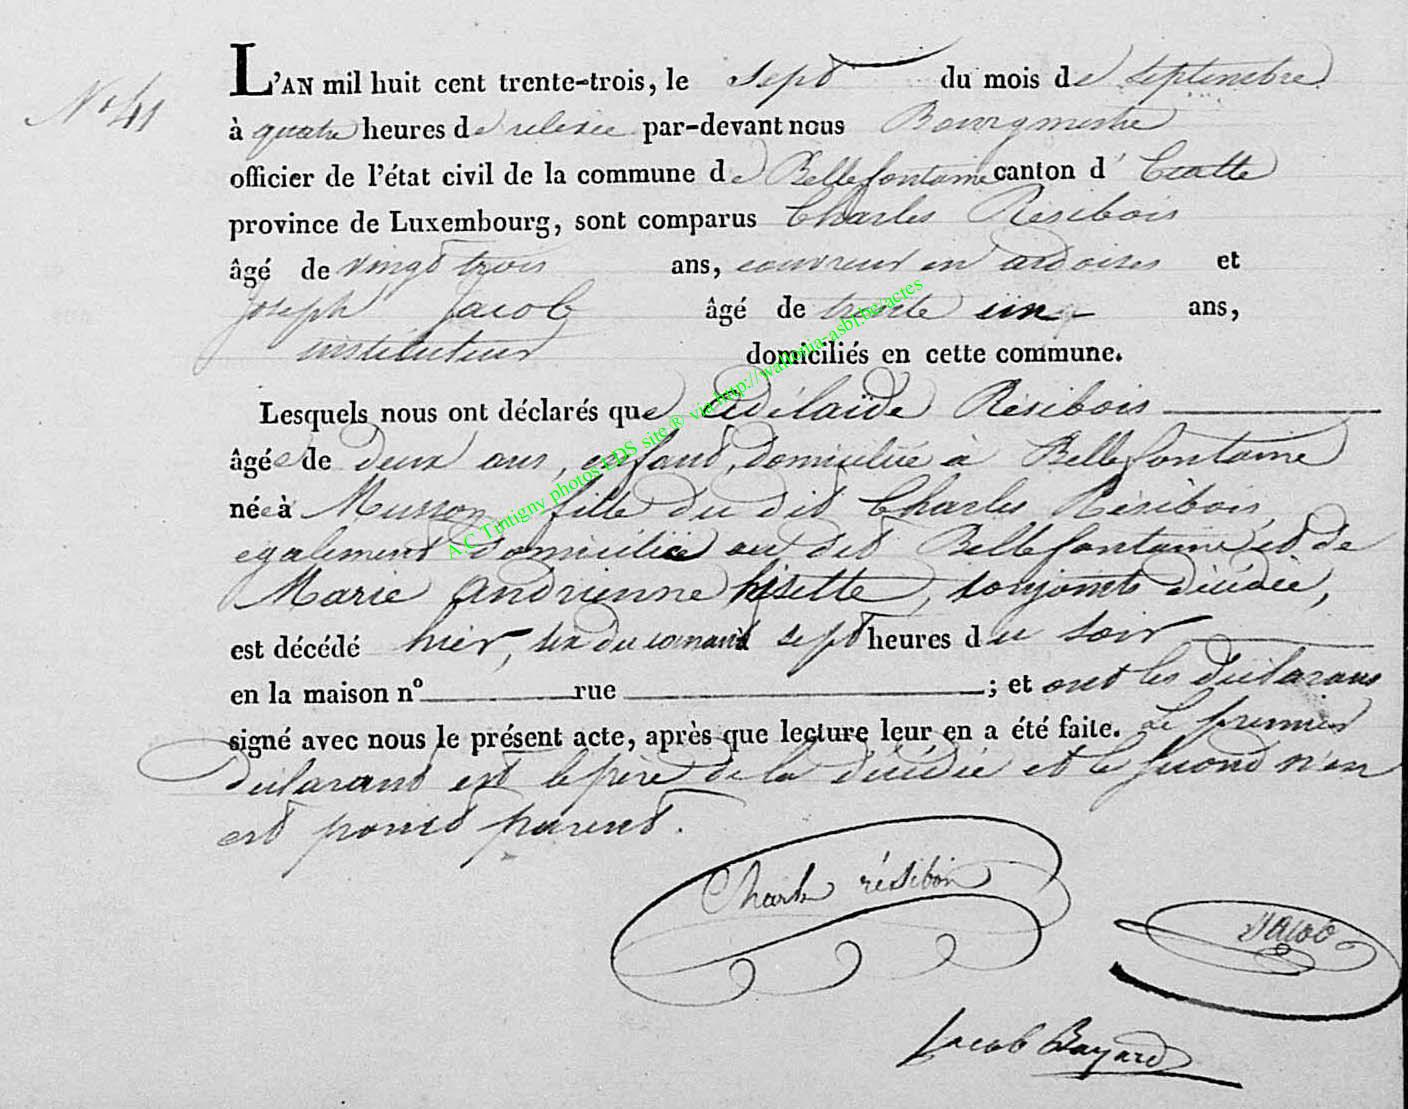 N° 41
L'AN mil huit cent trente-trois, le sept du mois de septembre
à quatre heures de relevée par-devant nous Bourgmestre
officier de l'état civil de la commune de Bellefontaine canton d'Etalle
province de Luxembourg, sont comparus Charles Résibois
âgé de vingt trois ans, couvreur en ardoises et
Joseph Jacob âgé de trente cinq ans,
instituteur domiciliés en cette commune.
Lesquels nous ont déclarés que Adélaïde Résibois
âgée de deux ans, enfant, domiciliée à Bellefontaine
née à Musson, fille du dit Charles Résibois,
egalement domicilié au dit Bellefontaine et de
Marie Andrienne Lisette, conjoints décédée,
est décédé hier, six du courant sept heures du soir
en la maison n° rue ; et ont les déclarans
signé avec nous le présent acte, après que lecture leur en a été faite. Le premier
déclarant est le père de la décédée et le second n'en
est point parent.
Charles résibois
Jacob
Jacob Bayard
A.C Tintigny photos EDS site ® via http://wallonia-asbl.be/actes